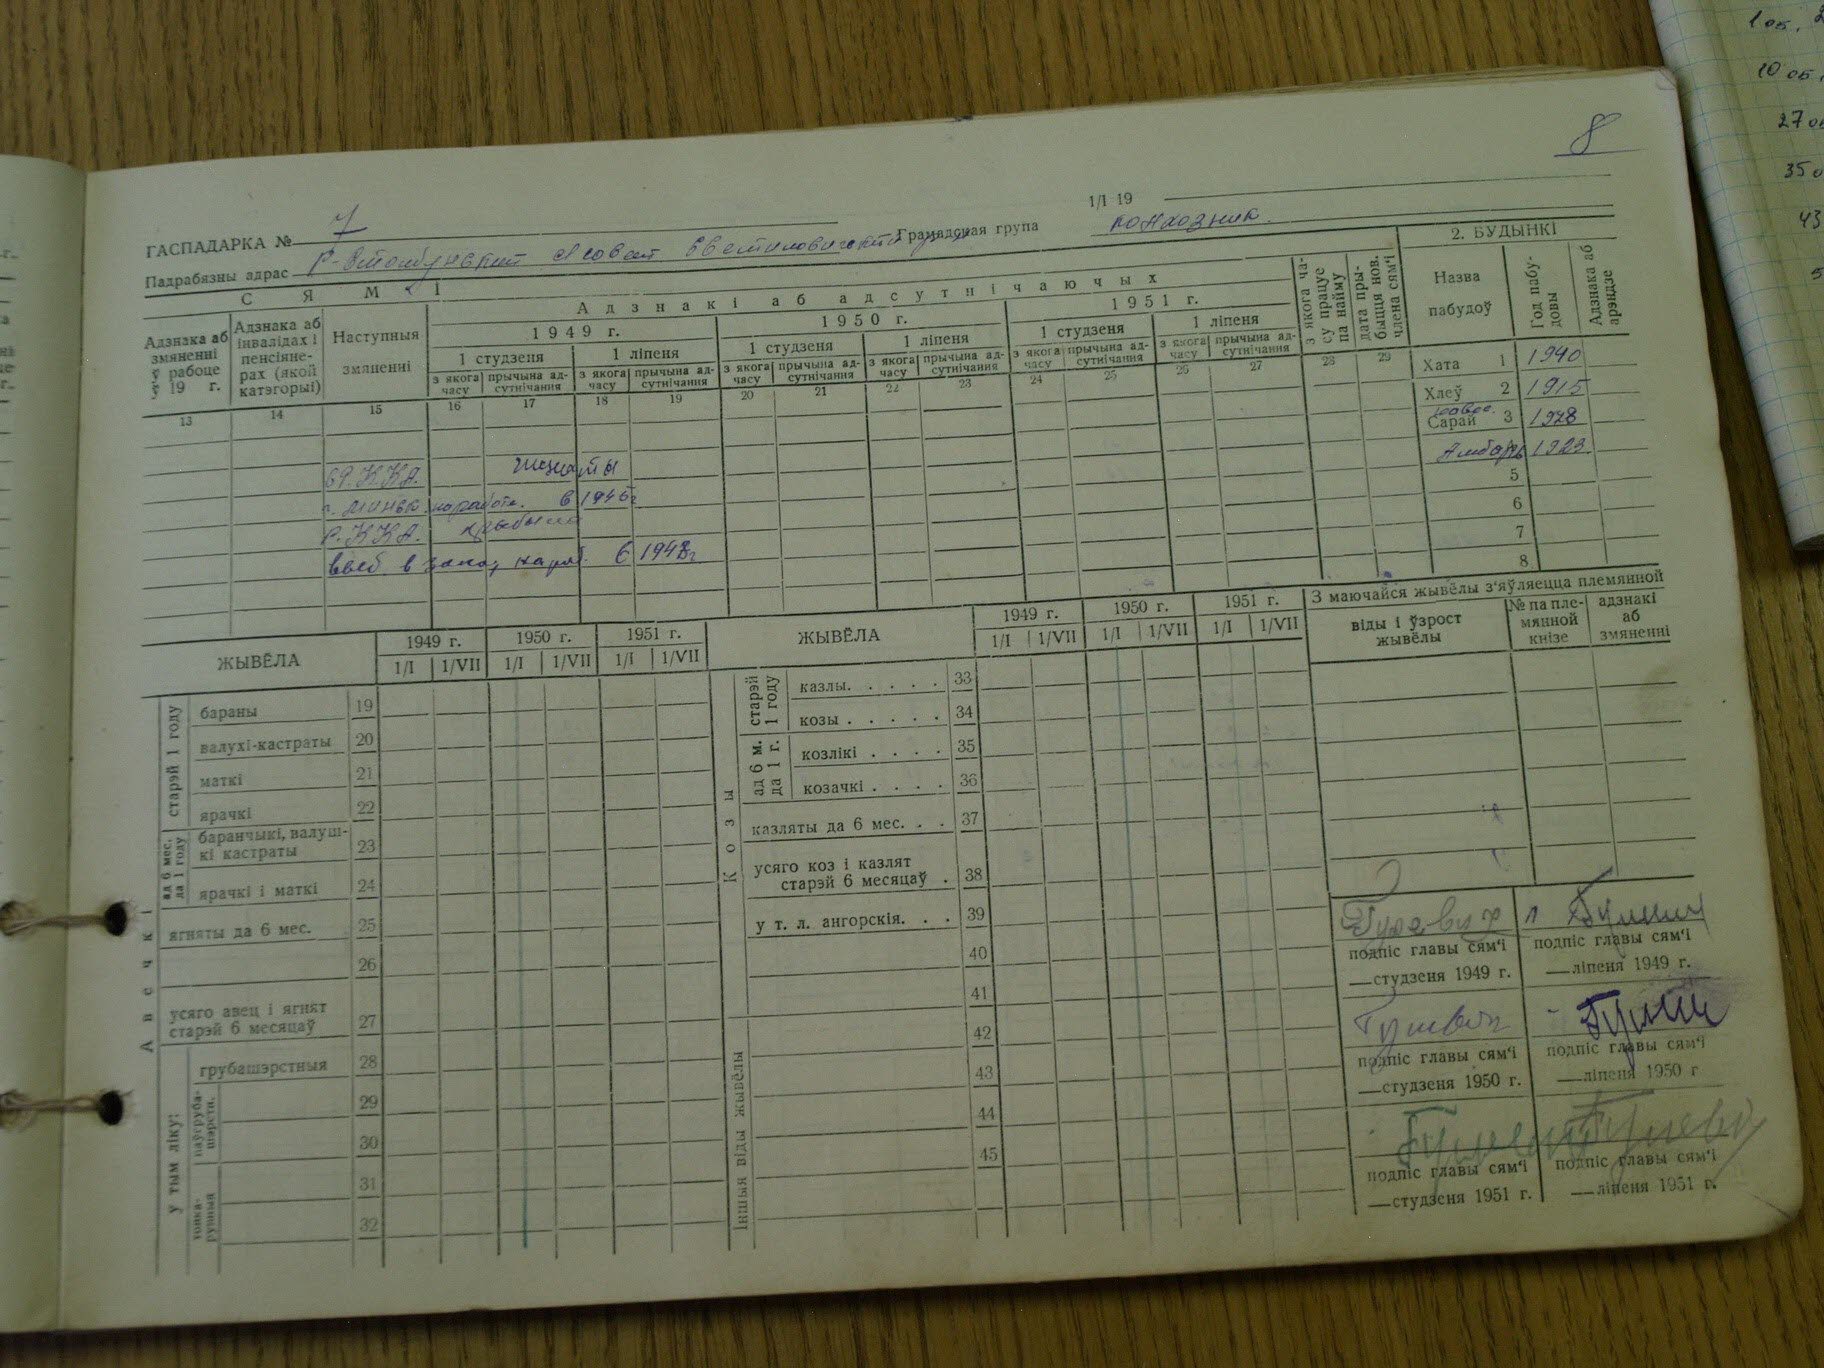 8
1/I 19
ГАСПАДАРКА № 7
Грамадская група колхозник
Падрабязны адрас
СЯМ'І
Адзнакі аб адсутнічаючых
2. БУДЫНКІ
Адзнака аб змяненні ў рабоце ў 19 г.
Адзнака аб інвалідах і пенсіяне-рах (якой катэгорыі)
Наступныя змяненні
1949 г.
1950 г.
1951 г.
1 студзеня
1 ліпеня
1 студзеня
1 ліпеня
1 студзеня
1 ліпеня
з якога часу
прычына ад-сутнічання
з якога часу
прычына ад-сутнічання
з якога часу
прычына ад-сутнічання
з якога часу
прычына ад-сутнічання
з якога часу
прычына ад-сутнічання
з якога часу
прычына ад-сутнічання
з якога ча-су працуе па найму
дата пры-быцця нов. члена сям'і
Назва пабудоў
Год пабу-довы
Адзнака аб арэндзе
13 14 15 16 17 18 19 20 21 22 23 24 25 26 27 28 29
Хата 1 1940
Хлеў 2 1915
Сарай 3 1928
Амбар
5
6
7
8
Р.К.К.А.
в 1946г
Р.К.К.А.
в 1948г.
ЖЫВЁЛА
1949 г.
1950 г.
1951 г.
1/I 1/VII 1/I 1/VII 1/I 1/VII
Авечкі
старэй 1 году
бараны 19
валухі-кастраты 20
маткі 21
ярачкі 22
ад 6 мес. да 1 году
баранчыкі, валуш-кі кастраты 23
ярачкі і маткі 24
ягняты да 6 мес. 25
26
усяго авец і ягнят старэй 6 месяцаў 27
у тым ліку:
грубашэрстныя 28
паўгруба-шэрсти.
29
30
тонка-рунныя
31
32
ЖЫВЁЛА
1949 г.
1950 г.
1951 г.
1/I 1/VII 1/I 1/VII 1/I 1/VII
Козы
старэй 1 году
казлы. . . . . 33
козы . . . . . 34
ад 6 м. да 1 г.
козлікі . . . . 35
козачкі . . . . 36
казляты да 6 мес. . . 37
усяго коз і казлят
старэй 6 месяцаў . 38
у т. л. ангорскія. . . 39
40
41
Іншыя віды жывёлы
42
43
44
45
З маючайся жывёлы з'яўляецца племянной
віды і ўзрост жывёлы
№ па пле-мянной кнізе
адзнакі аб змяненні
подпіс главы сям'і
—студзеня 1949 г.
подпіс главы сям'і
—ліпеня 1949 г.
подпіс главы сям'і
—студзеня 1950 г.
подпіс главы сям'і
—ліпеня 1950 г
подпіс главы сям'і
—студзеня 1951 г.
подпіс главы сям'і
—ліпеня 1951 г.
1 об.
10 об.
27 об
35 о
43
5